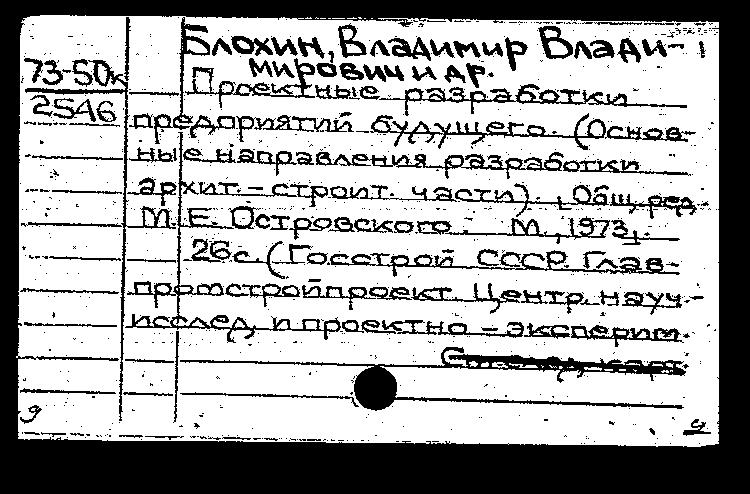 Блохин, Владимир Влади-
мирович и др.
73-50к
2546
Проектные разработки
предприятий будущего. (Основ-
ные направления разработки
архит.-строит. части). Общ. ред.
М.Е. Островского. М., 1973.
26с. (Госстрой СССР. Глав-
промстройпроект. Центр. науч.-
исслед. и проектно-эксперим.
См. след. карт.
9